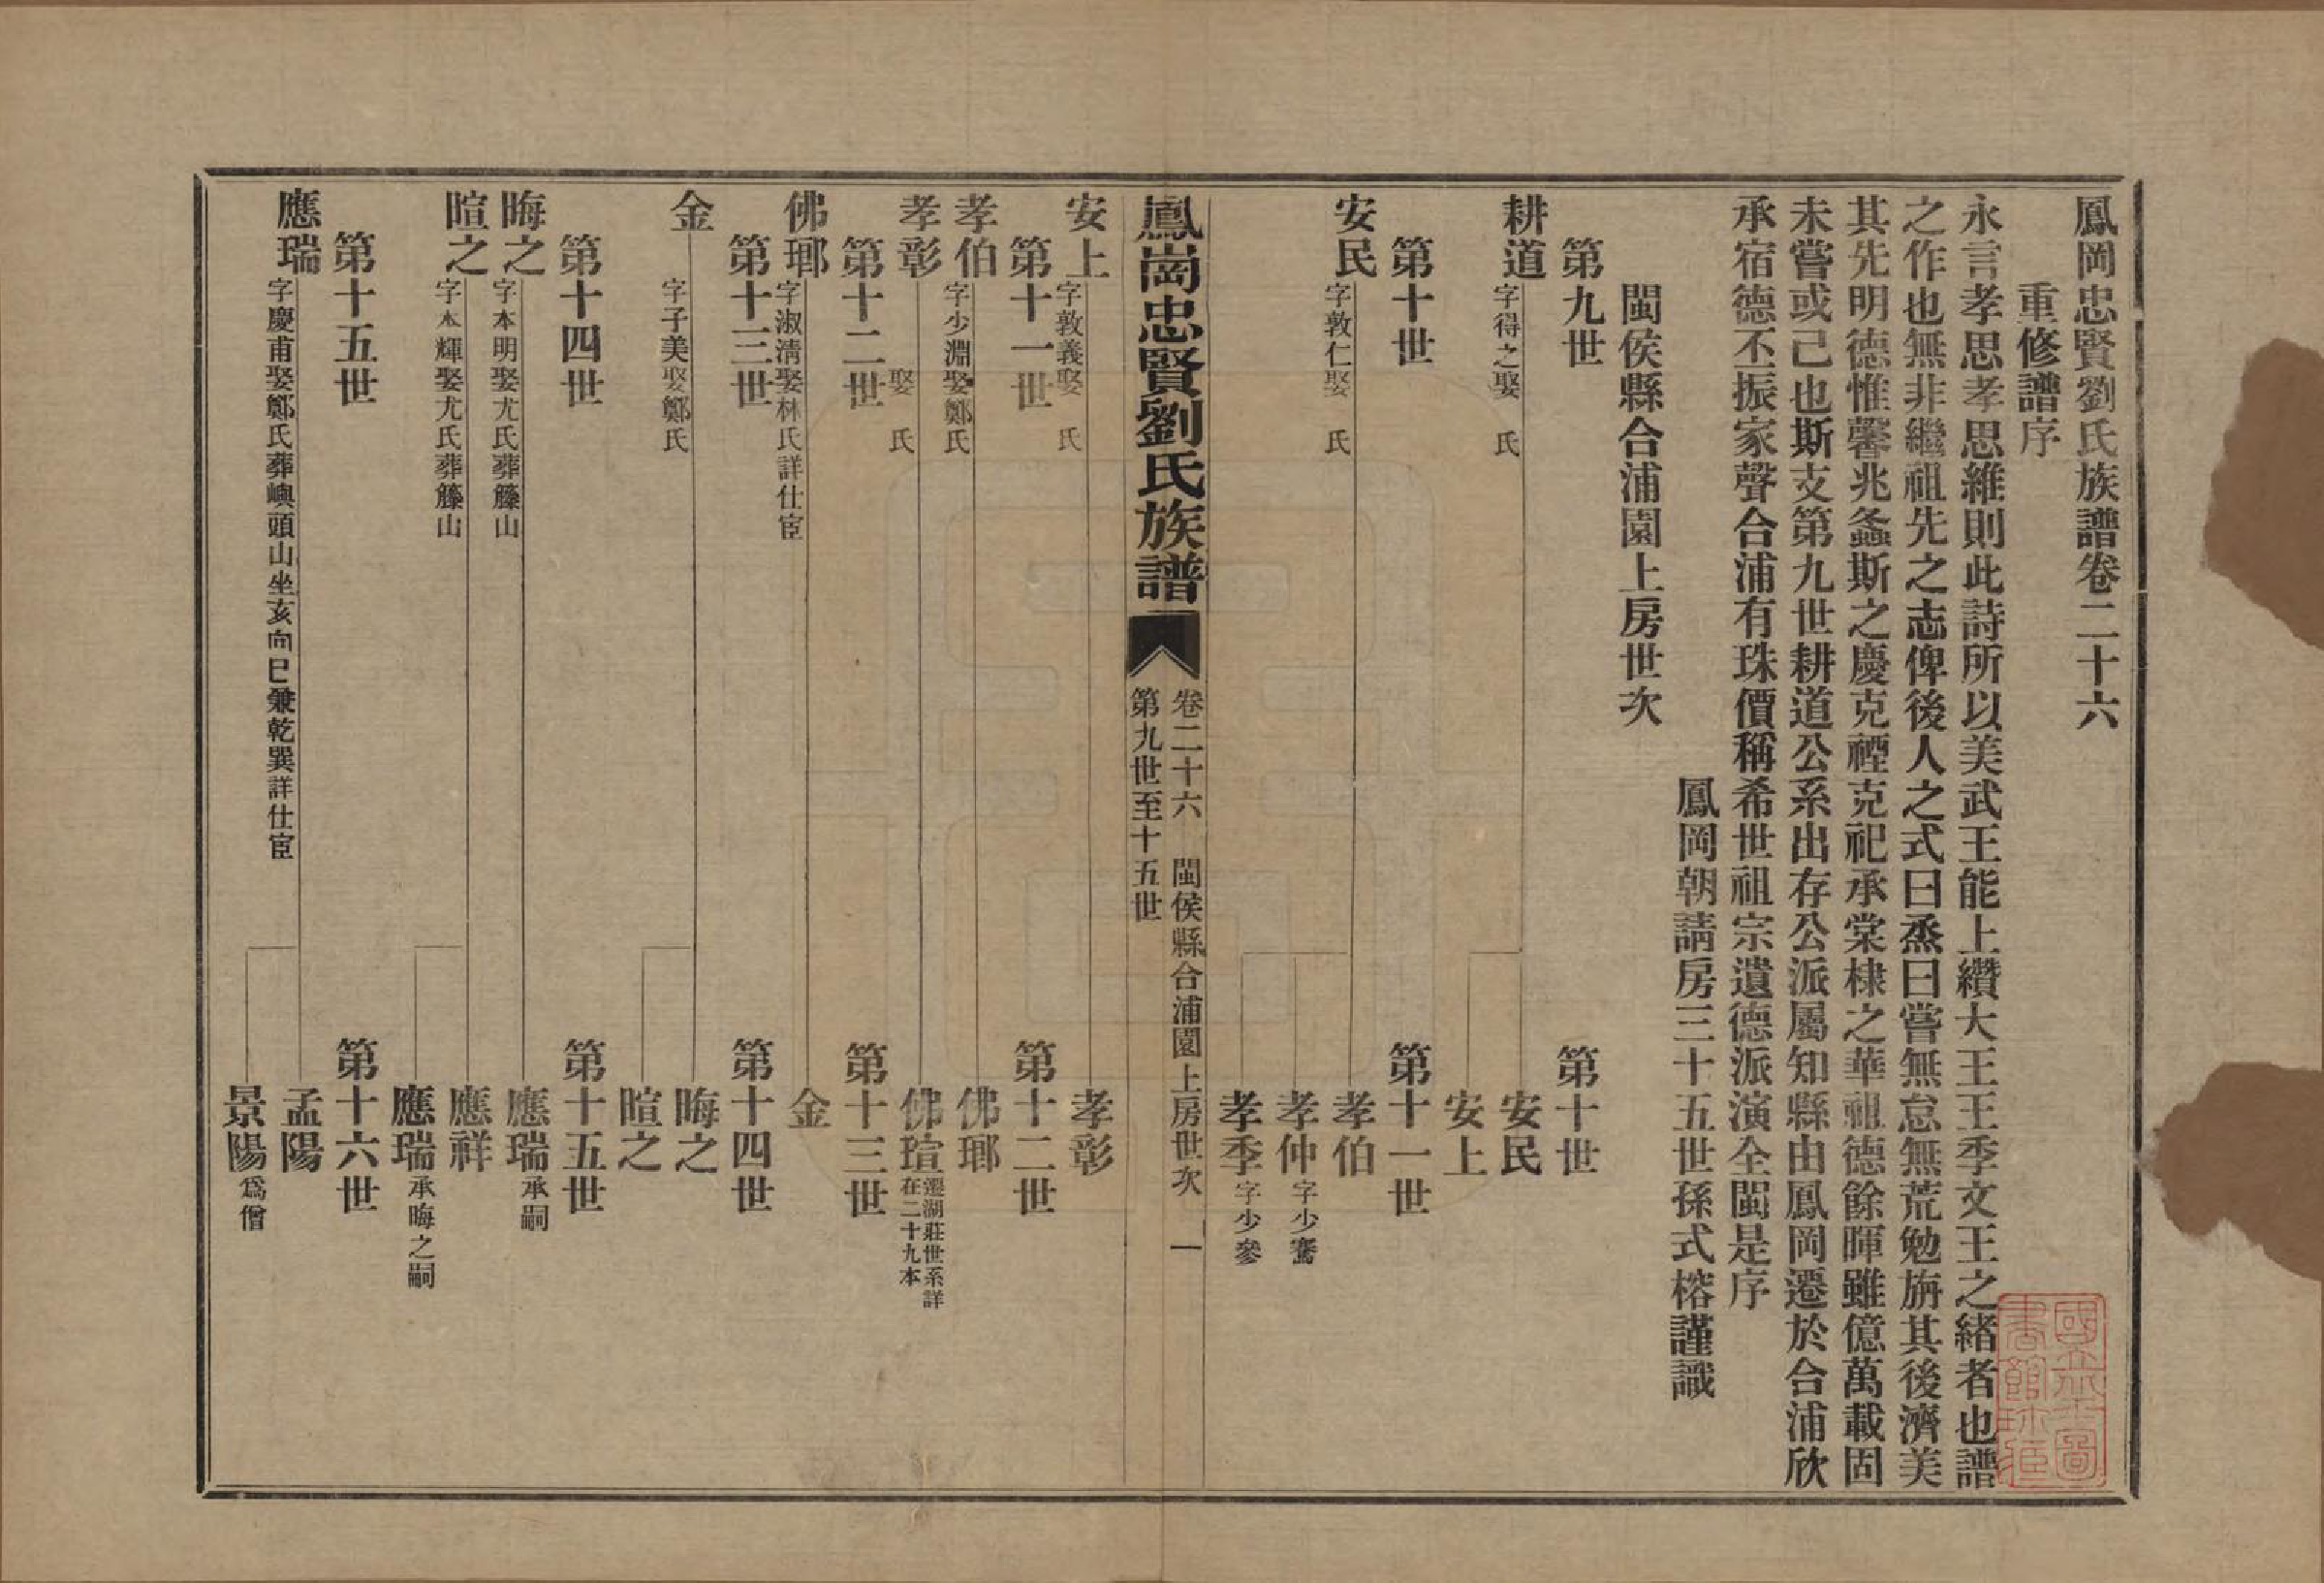 鳳岡忠賢劉氏族譜卷二十六
重修譜序
永言孝思孝思維則此詩所以美武王能上纘大王王季文王之緒者也譜
之作也無非繼祖先之志俾後人之式曰烝曰嘗無怠無荒勉旃其後濟美
其先明德惟馨兆螽斯之慶克禋克祀承棠棣之華祖德餘暉雖億萬載固
未嘗或己也斯支第九世耕道公系出存公派屬知縣由鳳岡遷於合浦欣
承宿德丕振家聲合浦有珠價稱希世祖宗遺德派演全閩是序
鳳岡朝請房三十五世孫式榕謹識
閩侯縣合浦園上房世次
第九世 第十世
耕道 字得之娶 氏 安民
安上
第十世 第十一世
安民 字敦仁娶 氏 孝伯
孝仲 字少騫
孝季 字少參
鳳崗忠賢劉氏族譜
卷二十六 閩侯縣合浦園上房世次 一
第九世至十五世
安上 字敦義娶 氏 孝彰
第十一世 第十二世
孝伯 字少淵娶鄭氏 佛瑯
孝彰 娶 氏 佛瑄 遷湖莊世系詳
在二十九本
第十二世 第十三世
佛瑯 字淑清娶林氏詳仕宦 金
第十三世 第十四世
金 字子美娶鄭氏 晦之
暄之
第十四世 第十五世
晦之 字本明娶尤氏葬籐山 應瑞 承嗣
暄之 字本輝娶尤氏葬籐山 應祥
應瑞 承晦之嗣
第十五世 第十六世
應瑞 字慶甫娶鄭氏葬嶼頭山坐亥向巳兼乾巽詳仕宦 孟陽
景陽 爲僧
國立北平圖
書館珍藏